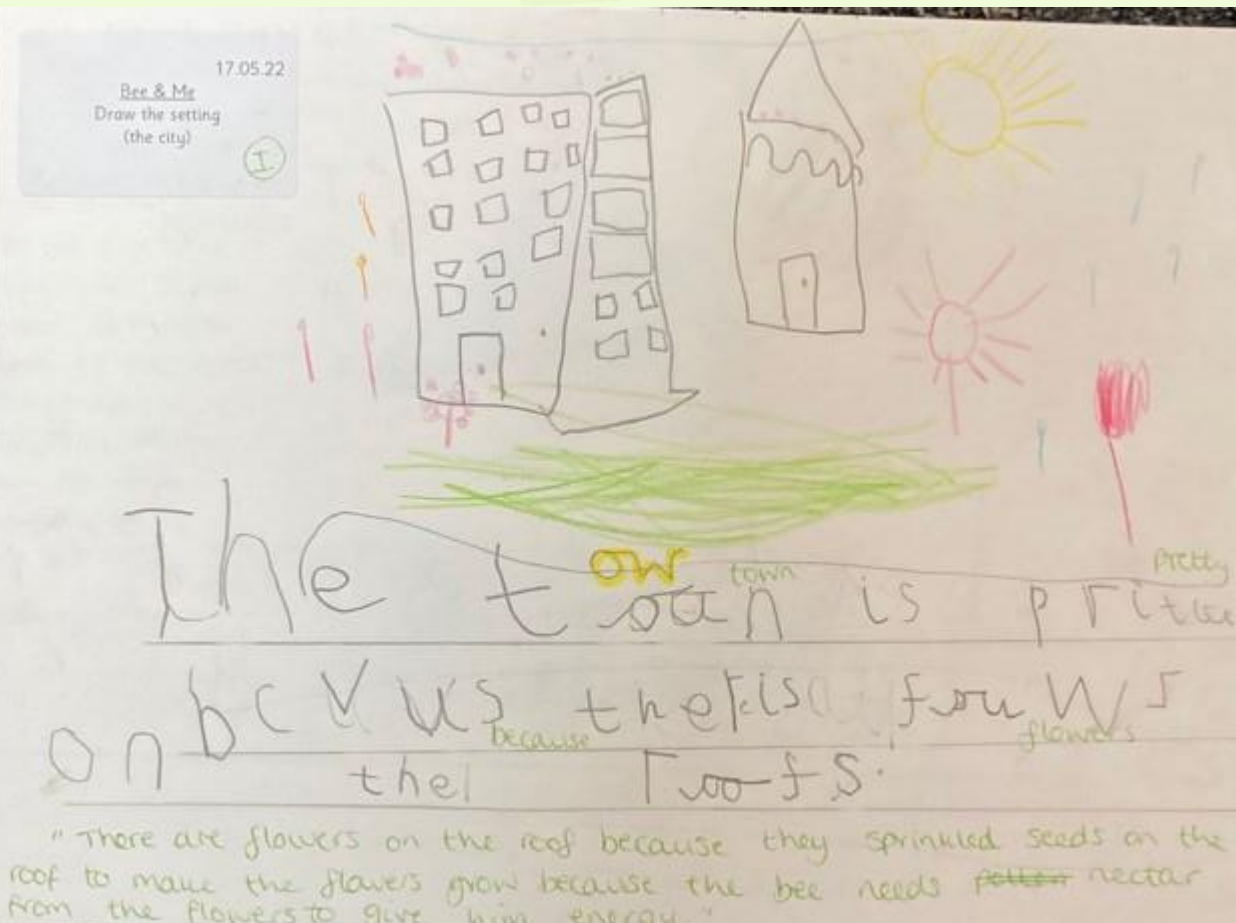 17.05.22
Bee & Me
Draw the setting
(the city)
I
ow town pretty
The toun is prittee
bcvus theris fouws
because flowers
on the roofs.
"There are flowers on the roof because they sprinkled seeds on the
roof to make the flowers grow because the bee needs pollen nectar
from the flowers to give him energy."